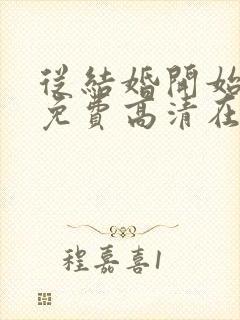 從結婚開始
免費高清在
程嘉喜1